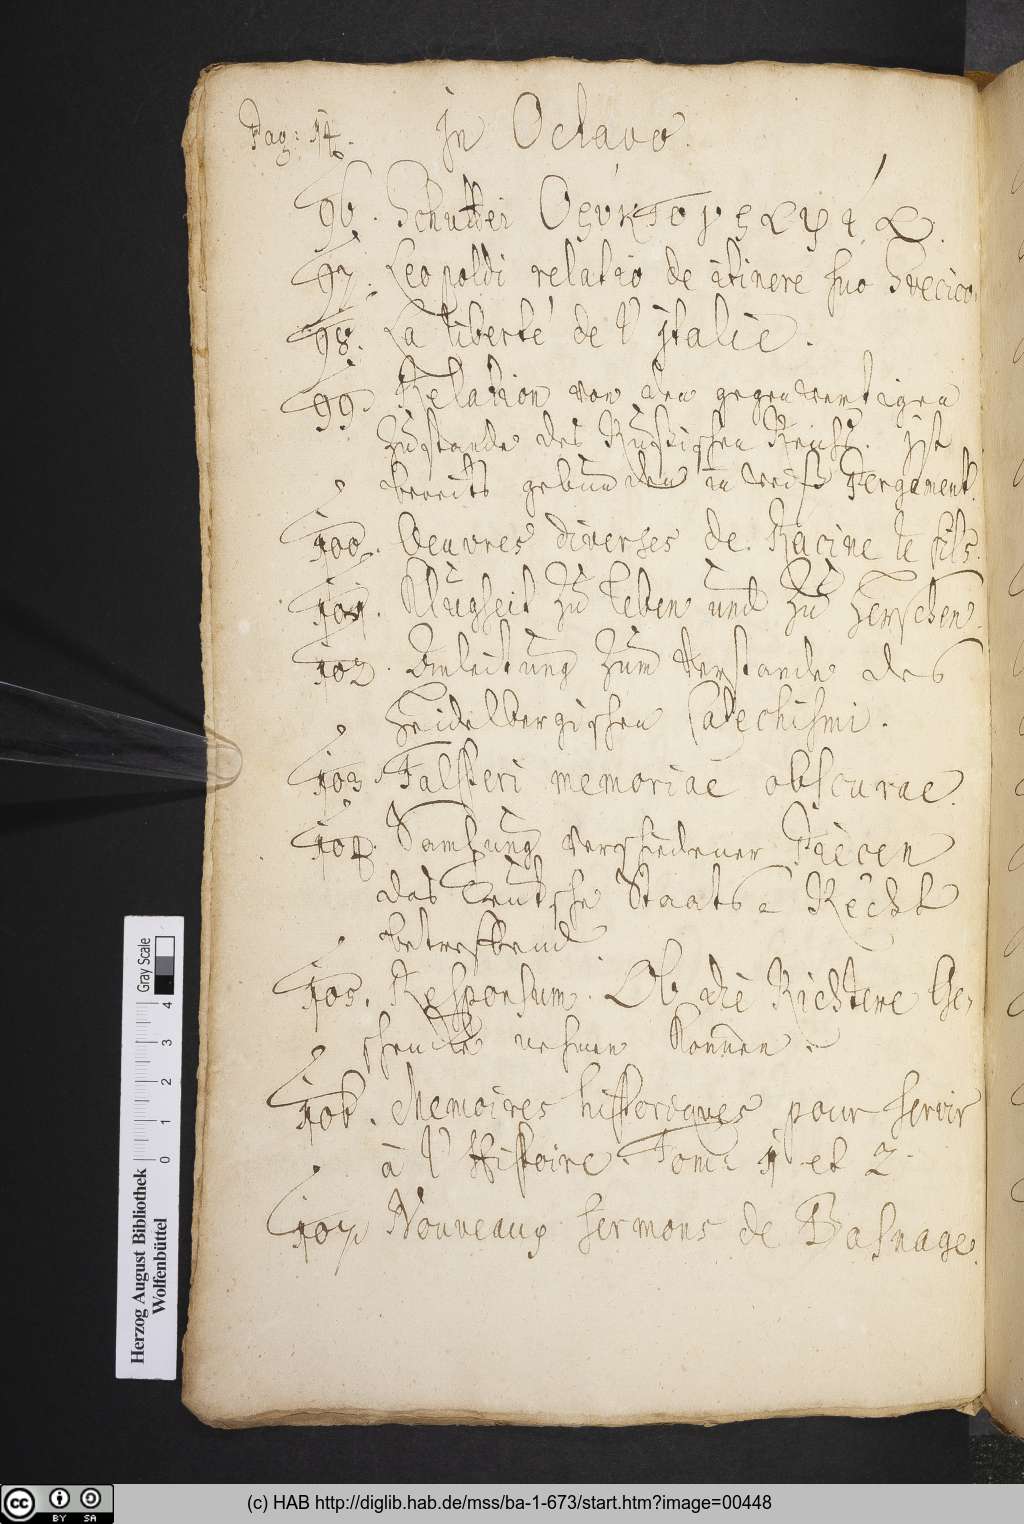 Pag: 14. In Octavo.
96. Schutteri
97. Leopoldi relatio de itinere suo Svecico.
98. La liberté de l'Italie.
99. Relation von den gegenwertigen
Zustande des Rußischen Reichs. Ist
bereits gebunden in weiß Pergament.
100. Oeuvres diverses de Racine le fils.
101. Klugheit zu leben und zu herschen.
102. Einleitung zum Verstande des
Heidelbergischen Catechismi.
103. Falsteri memoriae obscurae.
104. Samlung verschiedener Piecen
das Teutsche Staats- Recht
betreffend.
105. Responsum. Ob die Richtere Ge-
schencke nehmen können.
106. Memoires historiques pour servir
à l'Histoire. Tom: 1 et 2.
107. Nouveaux sermons de Basnage.
Herzog August Bibliothek
Wolfenbüttel
0 1 2 3 4
Gray Scale
cc BY SA
(c) HAB http://diglib.hab.de/mss/ba-1-673/start.htm?image=00448